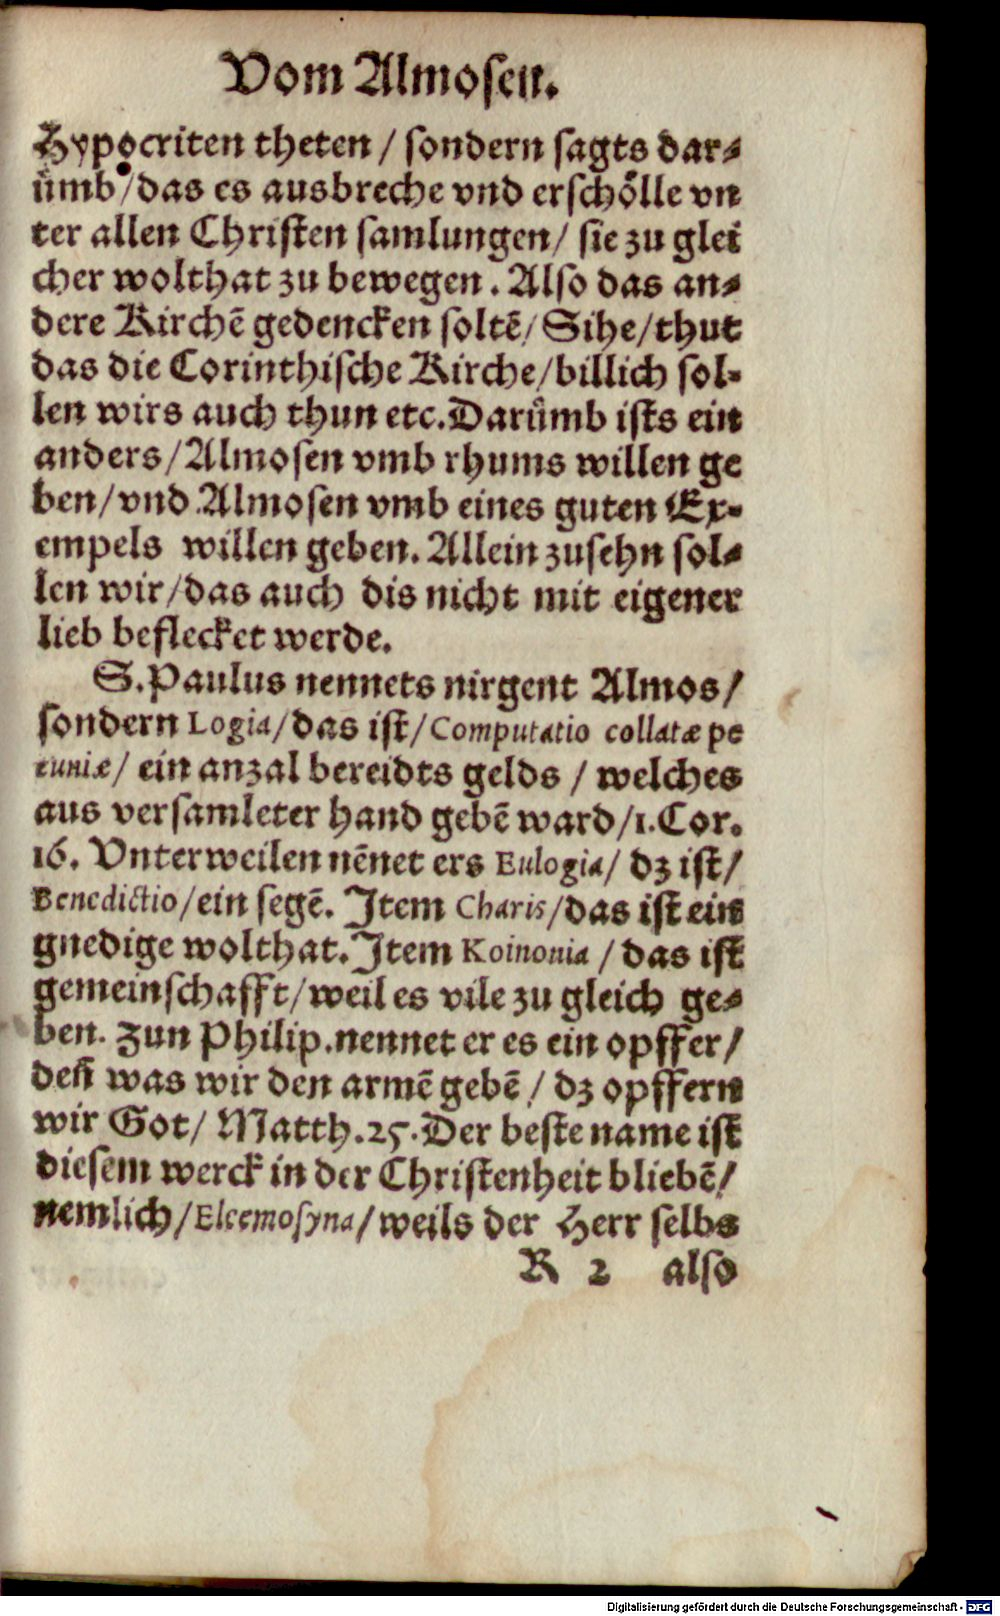 Vom Almosen.
Hypocriten theten / sondern sagts dar⸗
uͤmb / das es ausbreche vnd erschoͤlle vn
ter allen Christen samlungen / sie zu glei
cher wolthat zu bewegen. Also das an⸗
dere Kirchē gedencken soltē / Sihe / thut
das die Corinthische Kirche / billich sol⸗
len wirs auch thun etc. Daruͤmb ists ein
anders / Almosen vmb rhums willen ge
ben / vnd Almosen vmb eines guten Ex⸗
empels willen geben. Allein zusehn sol⸗
len wir / das auch dis nicht mit eigener
lieb beflecket werde.
S. Paulus nennets nirgent Almos /
sondern Logia / das ist / Computatio collatæ pe
cuniæ / ein anzal bereidts gelds / welches
aus versamleter hand gebē ward / 1. Cor.
16. Vnterweilen nēnet ers Eulogia / dz ist /
Benedictio / ein segē. Item Charis / das ist ein
gnedige wolthat. Item Koinonia / das ist
gemeinschafft / weil es vile zu gleich ge⸗
ben. Zun Philip. nennet er es ein opffer /
deñ was wir den armē gebē / dz opffern
wir Got / Matth. 25. Der beste name ist
diesem werck in der Christenheit bliebē /
nemlich / Eleemosyna / weils der Herr selbs
R 2 also
Digitalisierung gefördert durch die Deutsche Forschungsgemeinschaft - DFG